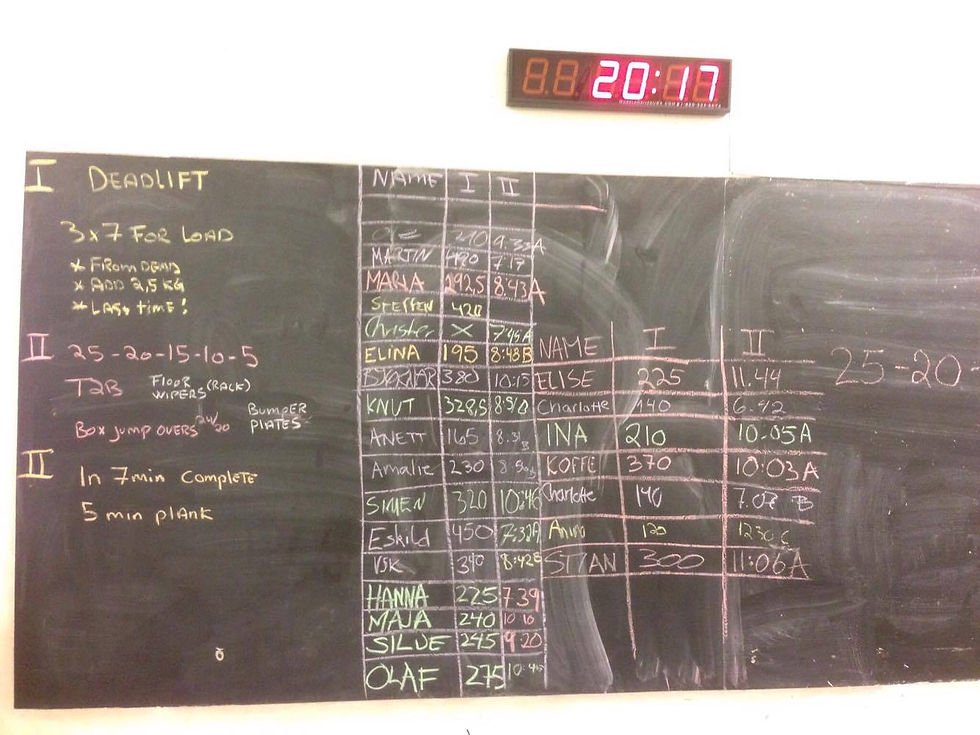 20:17
I DEADLIFT
3x7 FOR LOAD
* FROM DEAD
* ADD 2,5 KG
* LAST TIME!
II 25-20-15-10-5
T2B FLOOR WIPERS (RACK)
BOX JUMP OVERS 24/20 BUMPER PLATES
II In 7min complete
5 min plank
NAME I II
MARTIN
MARIA 292,5 8:43A
STEFFEN 420
Christer X 7:45A
ELINA 195 8:48B
380 10:15
KNUT
ANETT 165
Amalie 230
SIMEN 320 10:46
Eskild 450 7:32A
VSK 340
HANNA 225 7.39
MAJA 240 10 10
SILJE 245 9.20
OLAF 275 10:45
NAME I II
ELISE 225 11.44
Charlotte 140
INA 210 10.05A
KOFFE 370 10:03A
Charlotte 140 B
120
STIAN 300 11:06A
25-20-